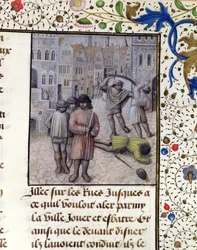 illec sur les rues jusques a
ce quil vouloit aler parmy
la ville jouer et esbatre. Et
ainsi que le devant disner
ilz lavoient conduit ilz le